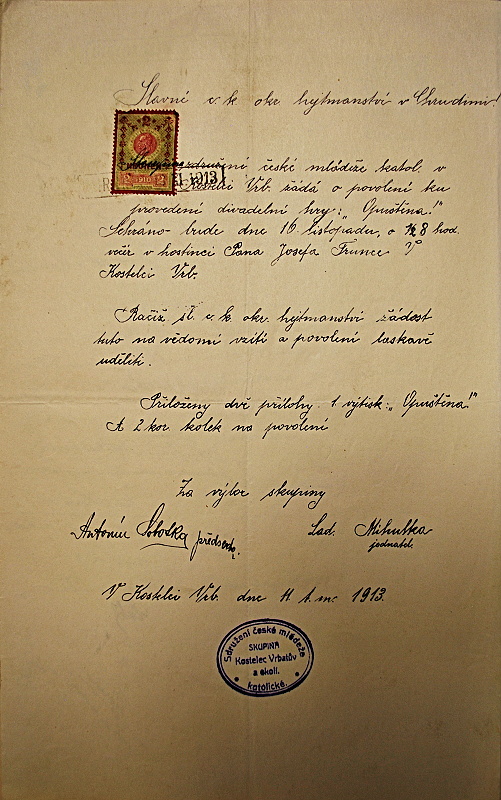 Slavné c. k. okr. hejtmanství v Chrudimi!
2
1910
2 2
1913
sdružení české mládeže katol. v
Kostelci Vrb. žádá o povolení ku
provedení divadelní hry: „Opuštěna!"
Sehráno bude dne 16. listopadu, o ½8 hod.
večer v hostinci Pana Josefa Trunce V
Kostelci Vrb.
Račiž sl. c. k. okr. hejtmanství žádost
tuto na vědomí vzíti a povolení laskavě
uděliti.
Přiloženy dvě přílohy. 1 výtisk: „Opuštěna!"
A 2 kor. kolek na povolení
Za výbor skupiny
Antonín Sobotka předseda.
Lad. Mihulka
jednatel.
V Kostelci Vrb. dne 11. t. m. 1913.
Sdružení české mládeže
SKUPINA
Kostelec Vrbatův
a okolí.
katolické.